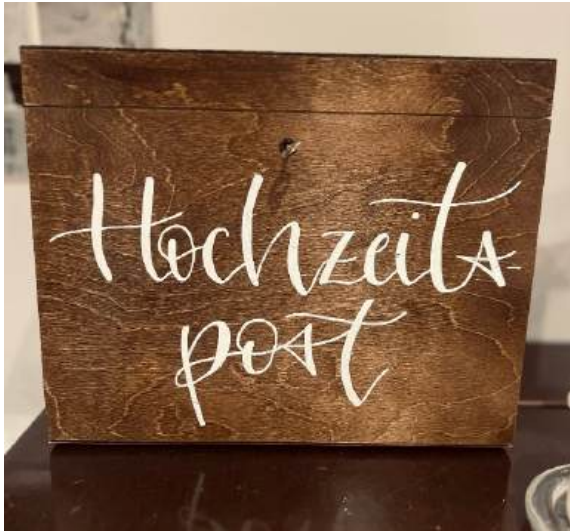 Hochzeits-
post